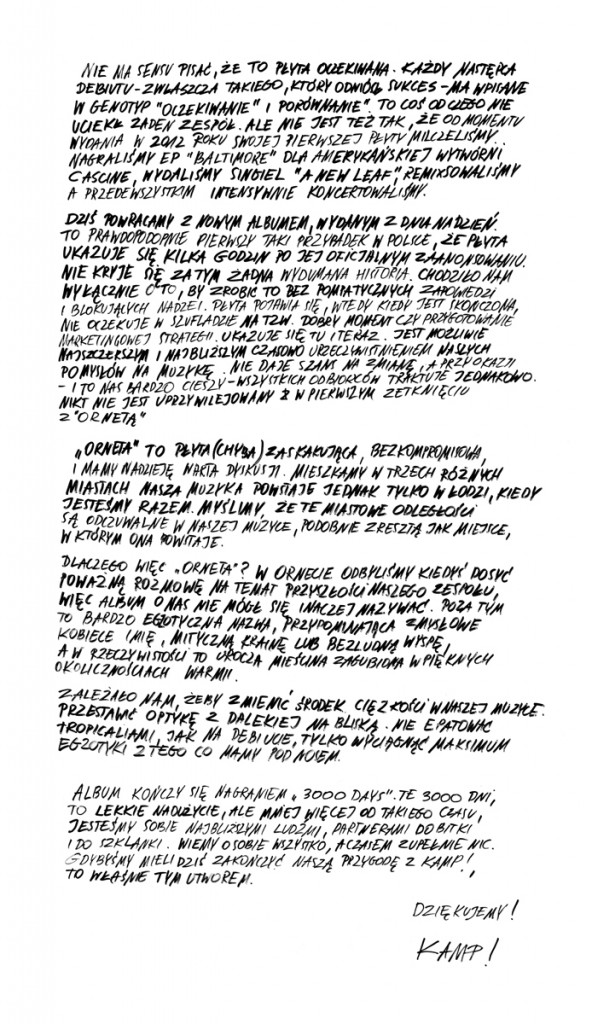 NIE MA SENSU PISAĆ, ŻE TO PŁYTA OCZEKIWANA. KAŻDY NASTĘPCA
DEBIUTU - ZWŁASZCZA TAKIEGO, KTÓRY ODNIÓSŁ SUKCES - MA WPISANE
W GENOTYP "OCZEKIWANIE" I "PORÓWNANIE". TO COŚ OD CZEGO NIE
UCIEKŁ ŻADEN ZESPÓŁ. ALE NIE JEST TEŻ TAK, ŻE OD MOMENTU
WYDANIA W 2012 ROKU SWOJEJ PIERWSZEJ PŁYTY MILCZELIŚMY.
NAGRALIŚMY EP "BALTIMORE" DLA AMERYKAŃSKIEJ WYTWÓRNI
CASCINE, WYDALIŚMY SINGIEL "A NEW LEAF", REMIXSOWALIŚMY
A PRZEDEWSZYSTKIM INTENSYWNIE KONCERTOWALIŚMY.
DZIŚ POWRACAMY Z NOWYM ALBUMEM, WYDANYM Z DNIA NA DZIEŃ.
TO PRAWDOPODOPNIE PIERWSZY TAKI PRZYPADEK W POLSCE, ŻE PŁYTA
UKAZUJE SIĘ KILKA GODZIN PO JEJ OFICJALNYM ZAANONSOWANIU.
NIE KRYJE SIĘ ZA TYM ŻADNA WYDUMANA HISTORIA. CHODZIŁO NAM
WYŁĄCZNIE O TO, BY ZROBIĆ TO BEZ POMPATYCZNYCH ZAPOWIEDZI
I BLOKUJĄCYCH NADZEI. PŁYTA POJAWIA SIĘ, WTEDY KIEDY JEST SKOŃCZONA,
NIE OCZEKUJE W SZUFLADZIE NA TZW. DOBRY MOMENT CZY PRZYGOTOWANIE
MARKETINGOWEJ STRATEGII. UKAZUJE SIĘ TU I TERAZ. JEST MOŻLIWIE
NAJSZCZERSZYM I NAJBLIŻSZYM CZASOWO URZECZYWISTNIENIEM NASZYCH
POMYSŁÓW NA MUZYKĘ. NIE DAJE SZANS NA ZMIANĘ, A PRZY OKAZJI
- I TO NAS BARDZO CIESZY - WSZYSTKICH ODBIORCÓW TRAKTUJE JEDNAKOWO.
NIKT NIE JEST UPRZYWILEJOWANY W PIERWSZYM ZETKNIĘCIU
Z "ORNETĄ"
„ORNETA" TO PŁYTA (CHYBA) ZASKAKUJĄCA, BEZKOMPROMISOWA,
I MAMY NADZIEJĘ WARTA DYSKUSJI. MIESZKAMY W TRZECH RÓŻNYCH
MIASTACH NASZA MUZYKA POWSTAJE JEDNAK TYLKO W ŁODZI, KIEDY
JESTEŚMY RAZEM. MYŚLIMY, ŻE TE MIASTOWE ODLEGŁOŚCI
SĄ ODCZUWALNE W NASZEJ MUZYCE, PODOBNIE ZRESZTĄ JAK MIEJSCE,
W KTÓRYM ONA POWSTAJE.
DLACZEGO WIĘC „ORNETA"? W ORNECIE ODBYLIŚMY KIEDYŚ DOSYĆ
POWAŻNĄ ROZMOWĘ NA TEMAT PRZYSZŁOŚCI NASZEGO ZESPOŁU,
WIĘC ALBUM O NAS NIE MÓGŁ SIĘ INACZEJ NAZYWAĆ. POZA TYM
TO BARDZO EGZOTYCZNA NAZWA, PRZYPOMINAJĄCA ZMYSŁOWE
KOBIECE IMIĘ, MITYCZNĄ KRAINĘ LUB BEZLUDNĄ WYSPĘ,
A W RZECZYWISTOŚCI TO UROCZA MIEŚCINA ZAGUBIONA W PIĘKNYCH
OKOLICZNOŚCIACH WARMII.
ZALEŻAŁO NAM, ŻEBY ZMIENIĆ ŚRODEK CIĘŻKOŚCI W NASZEJ MUZYCE.
PRZESTAWIĆ OPTYKĘ Z DALEKIEJ NA BLISKĄ. NIE EPATOWAĆ
TROPICALIAMI, JAK NA DEBIUCIE, TYLKO WYCIĄGNĄĆ MAKSIMUM
EGZOTYKI Z TEGO CO MAMY POD NOSEM.
ALBUM KOŃCZY SIĘ NAGRANIEM „3000 DAYS". TE 3000 DNI,
TO LEKKIE NADUŻYCIE, ALE MNIEJ WIĘCEJ OD TAKIEGO CZASU,
JESTEŚMY SOBIE NAJBLIŻSZYMI LUDŹMI, PARTNERAMI DO BITKI
I DO SZKLANKI. WIEMY O SOBIE WSZYSTKO, A CZASEM ZUPEŁNIE NIC.
GDYBYŚMY MIELI DZIŚ ZAKOŃCZYĆ NASZĄ PRZYGODĘ Z KAMP!,
TO WŁAŚNIE TYM UTWOREM.
DZIĘKUJEMY!
KAMP!